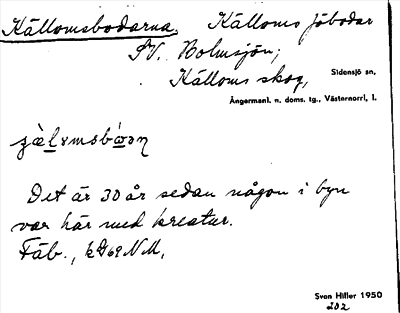 Källomsbodarna, Källoms fäbodar
SV. Bolmsjön;
Källoms skog,
Sidensjö sn,
Ångermanl. n. doms. tg., Västernorrl. l.
Det är 30 år sedan någon i byn
var här med kreatur.
Fäb., NM,
Sven Hitler 1950
202